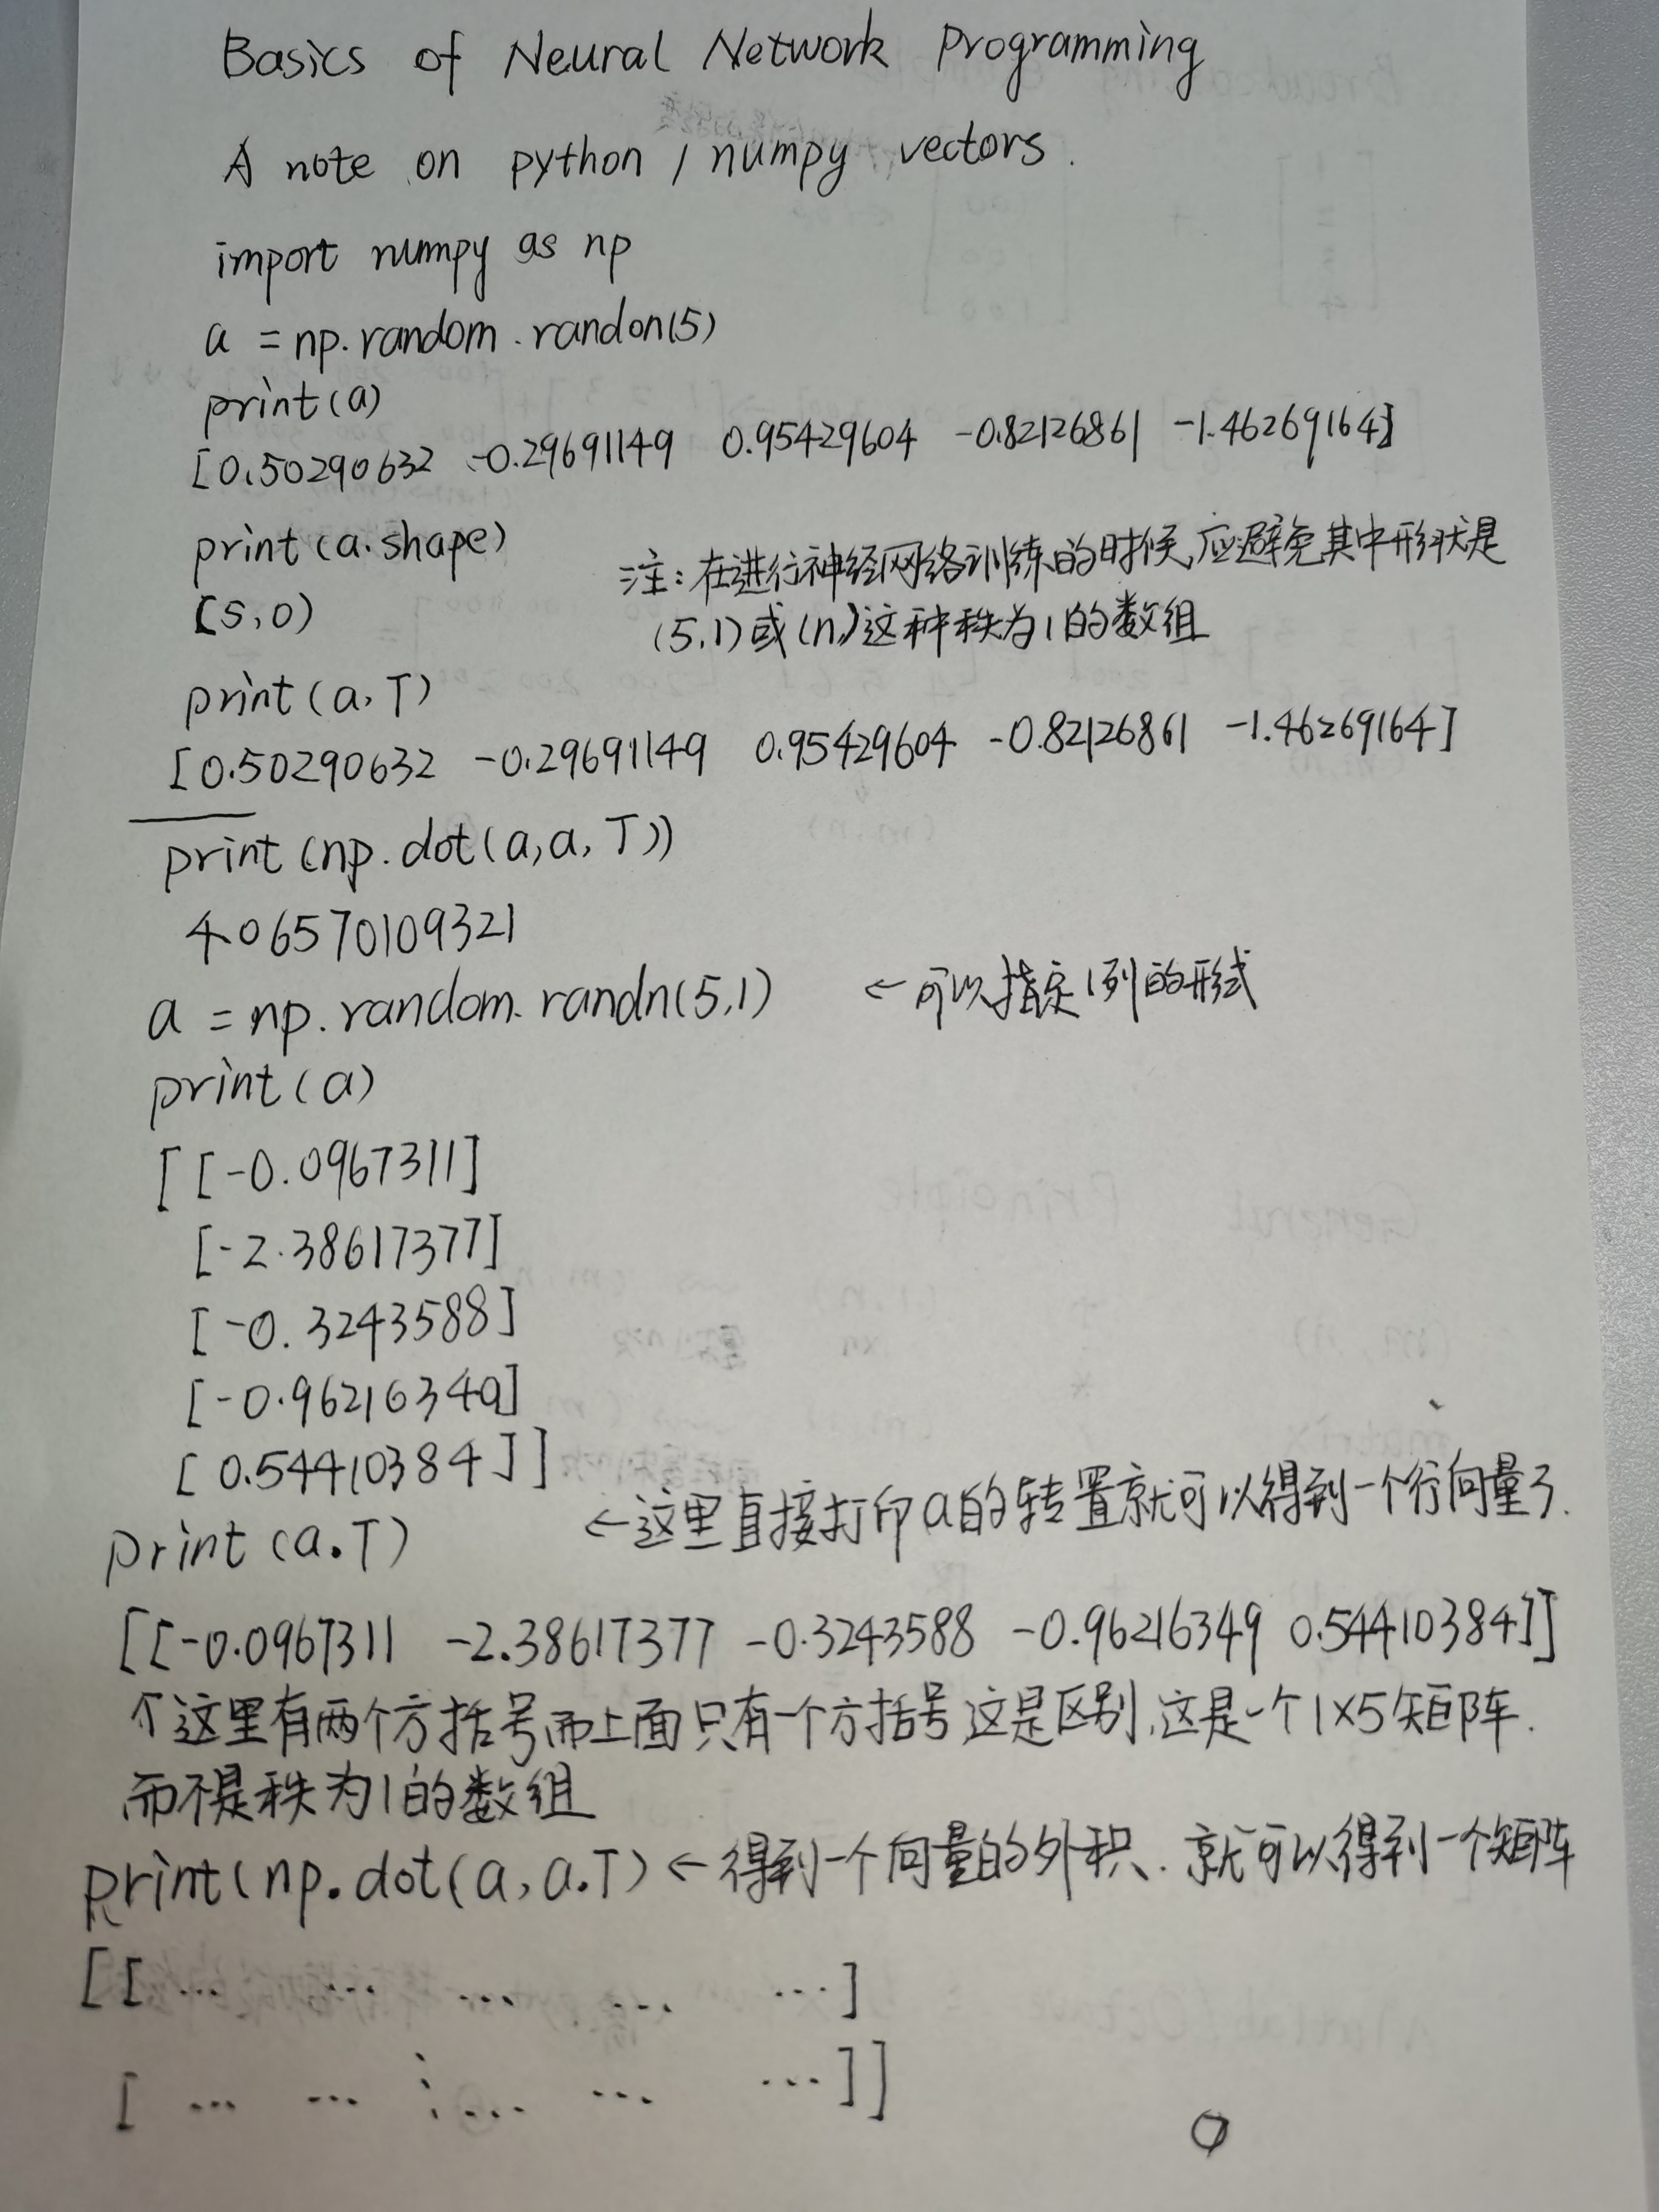 Basics of Neural Network Programming
A note on python / numpy vectors.
import numpy as np
a = np.random.randon(5)
print(a)
[0.50290632 -0.29691149 0.95429604 -0.82126861 -1.46269164]
print(a.shape)
[5,0)
注：在进行神经网络训练的时候,应避免其中形状是
(5,1)或(n,)这种秩为1的数组
print(a,T)
[0.50290632 -0.29691149 0.95429604 -0.82126861 -1.46269164]
print(np.dot(a,a,T))
4.06570109321
a = np.random.randn(5,1) ←可以指定1列的形式
print(a)
[[-0.0967311]
[-2.38617377]
[-0.3243588]
[-0.96216349]
[0.54410384]]
print(a.T) ←这里直接打印a的转置就可以得到一个行向量了.
[[-0.0967311 -2.38617377 -0.3243588 -0.96216349 0.54410384]]
↑这里有两个方括号而上面只有一个方括号这是区别,这是一个1×5矩阵.
而不是秩为1的数组
print(np.dot(a,a.T) ← 得到一个向量的外积.就可以得到一个矩阵
[[... ... ... ... ...]
⋮
[... ... ... ... ...]]